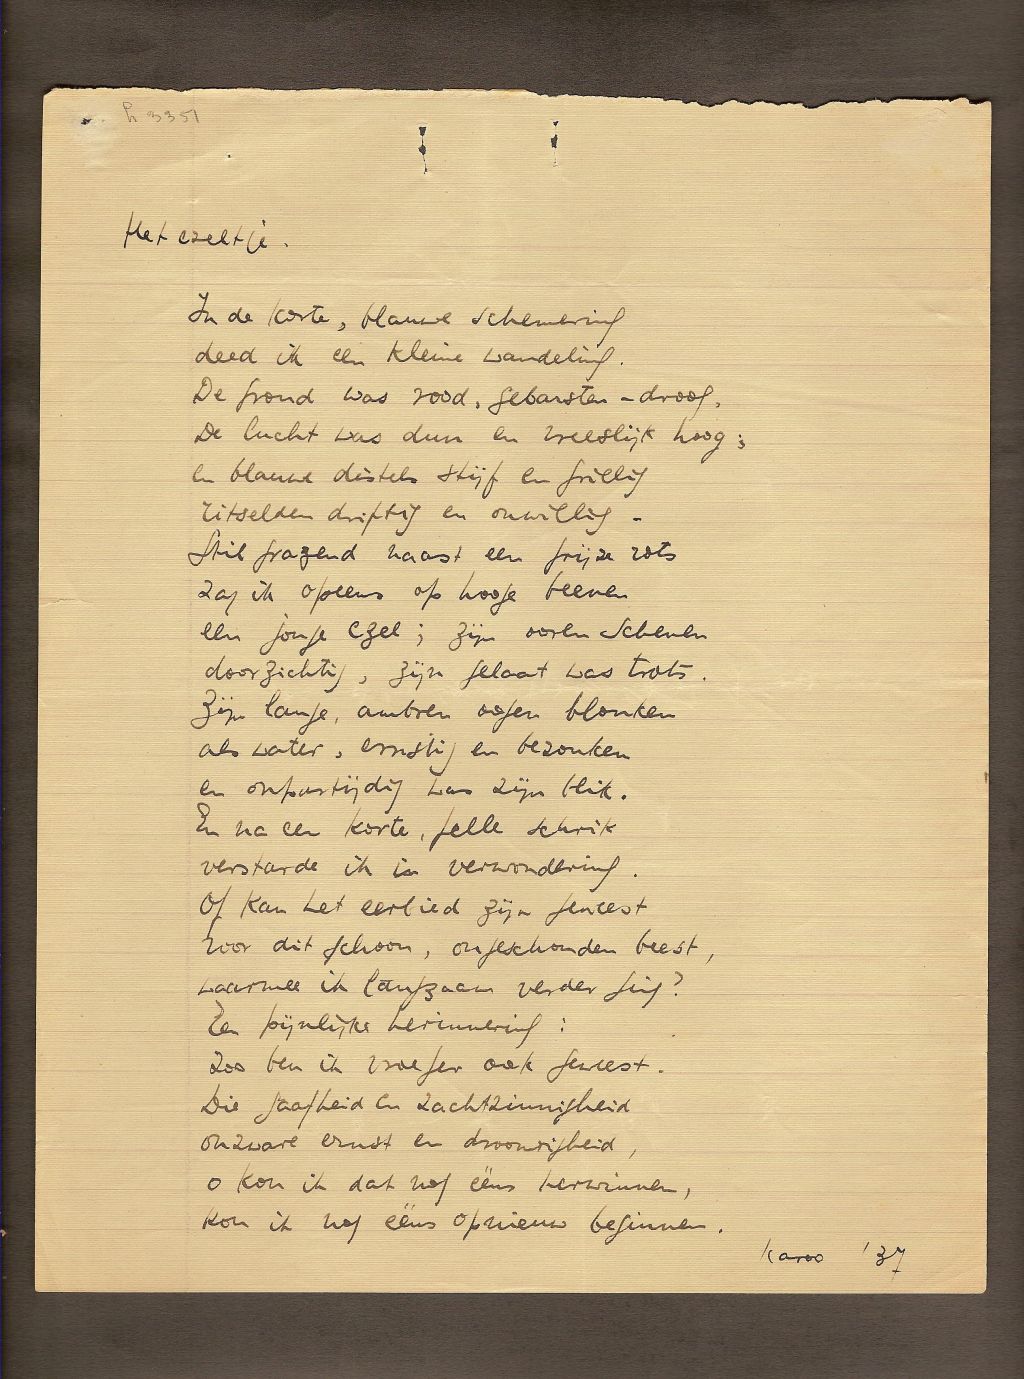 h 3351
Het ezeltje.
In de korte, blauwe schemering
deed ik een kleine wandeling.
De grond was rood, gebarsten-droog,
De lucht was dun en vreeslijk hoog;
en blauwe distels stijf en grillig
ritselden driftig en onwillig -
Stil grazend naast een grijze rots
zag ik opeens op hooge beenen
een jonge ezel; zijn ooren schenen
doorzichtig, zijn gelaat was trots.
Zijn lange, ambren oogen blonken
als water, ernstig en bezonken
en onpartijdig was zijn blik.
En na een korte, felle schrik
verstarde ik in verwondering.
Of kan het eerbied zijn geweest
voor dit schoon, ongeschonden beest,
waarmee ik langzaam verder ging?
Een pijnlijke herinnering:
zoo ben ik vroeger ook geweest.
Die gaafheid en zachtzinnigheid
onzware ernst en droomrigheid,
o kon ik dat nog ééns herwinnen,
kon ik nog ééns opnieuw beginnen.
Karoo '37